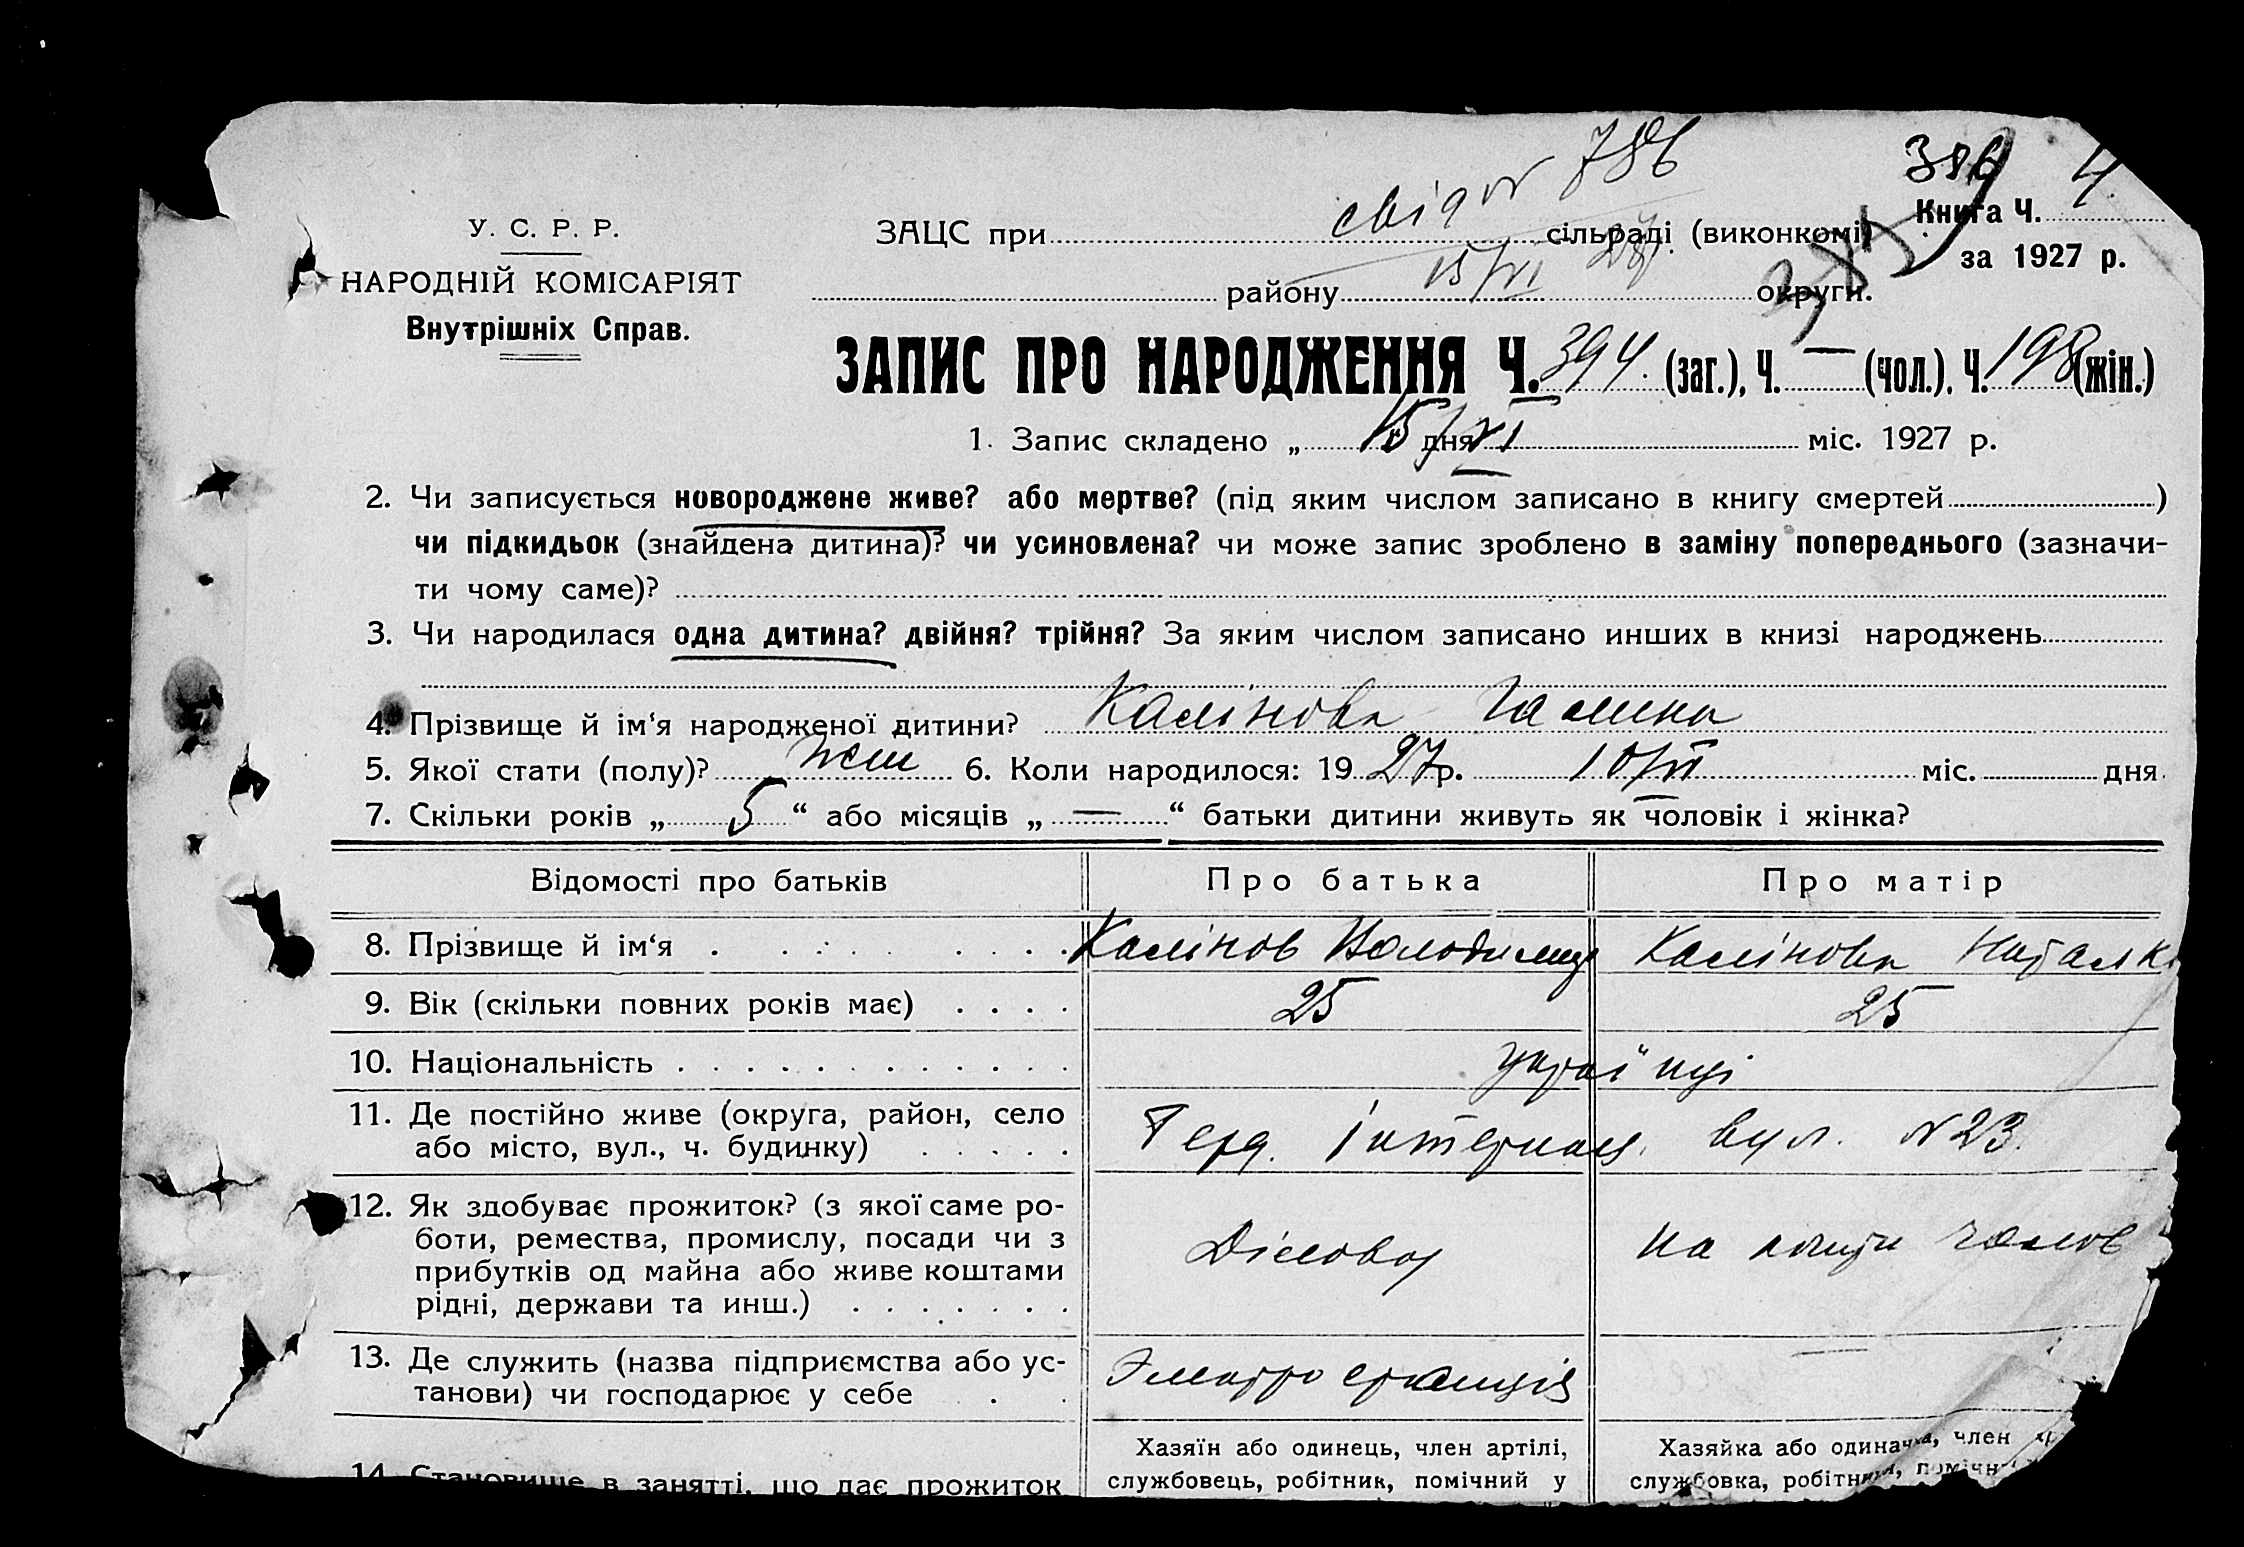 386 4
свід № 786
У. С. Р. Р.
НАРОДНІЙ КОМІСАРІЯТ
Внутрішніх Справ.
ЗАЦС при сільраді (виконкомі)
15/VI 27
району округи.
Книга Ч.
за 1927 р.
ЗАПИС ПРО НАРОДЖЕННЯ Ч. 394. (заг.), Ч. — (чол.), Ч. 198 (жін.)
1. Запис складено „ 15/VI дня міс. 1927 р.
2. Чи записується новороджене живе? або мертве? (під яким числом записано в книгу смертей )
чи підкидьок (знайдена дитина)? чи усиновлена? чи може запис зроблено в заміну попереднього (зазначи-
ти чому саме)?
3. Чи народилася одна дитина? двійня? трійня? За яким числом записано инших в книзі народжень
4. Прізвище й ім‘я народженої дитини? Калінова Галина
5. Якої стати (полу)? жін 6. Коли народилося: 19 27 р. 10/VI міс. дня.
7. Скільки років „ 5 “ або місяців „ — “ батьки дитини живуть як чоловік і жінка?
Відомості про батьків Про батька Про матір
8. Прізвище й ім‘я Калінов Володимир Калінова Наталк
9. Вік (скільки повних років має) 25 25
10. Національність українці
11. Де постійно живе (округа, район, село
або місто, вул., ч. будинку) Інтернац. вул. № 23.
12. Як здобуває прожиток? (з якої саме ро-
боти, ремества, промислу, посади чи з
прибутків од майна або живе коштами
рідні, держави та инш.) Діловод на кошти чолов
13. Де служить (назва підприємства або ус-
танови) чи господарює у себе Електростанція
14. Становище в занятті, що дає прожиток
Хазяїн або одинець, член артілі,
службовець, робітник, помічний у
Хазяйка або одиначка, член
службовка, робітниця,